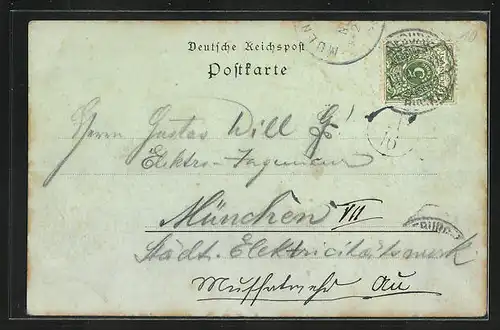 Deutsche Reichspost
Postkarte
Herrn Gustav Will
Elektro-Ingenieur
München VII
Städt. Elektricitätswerk
Muffatwehr Au
5